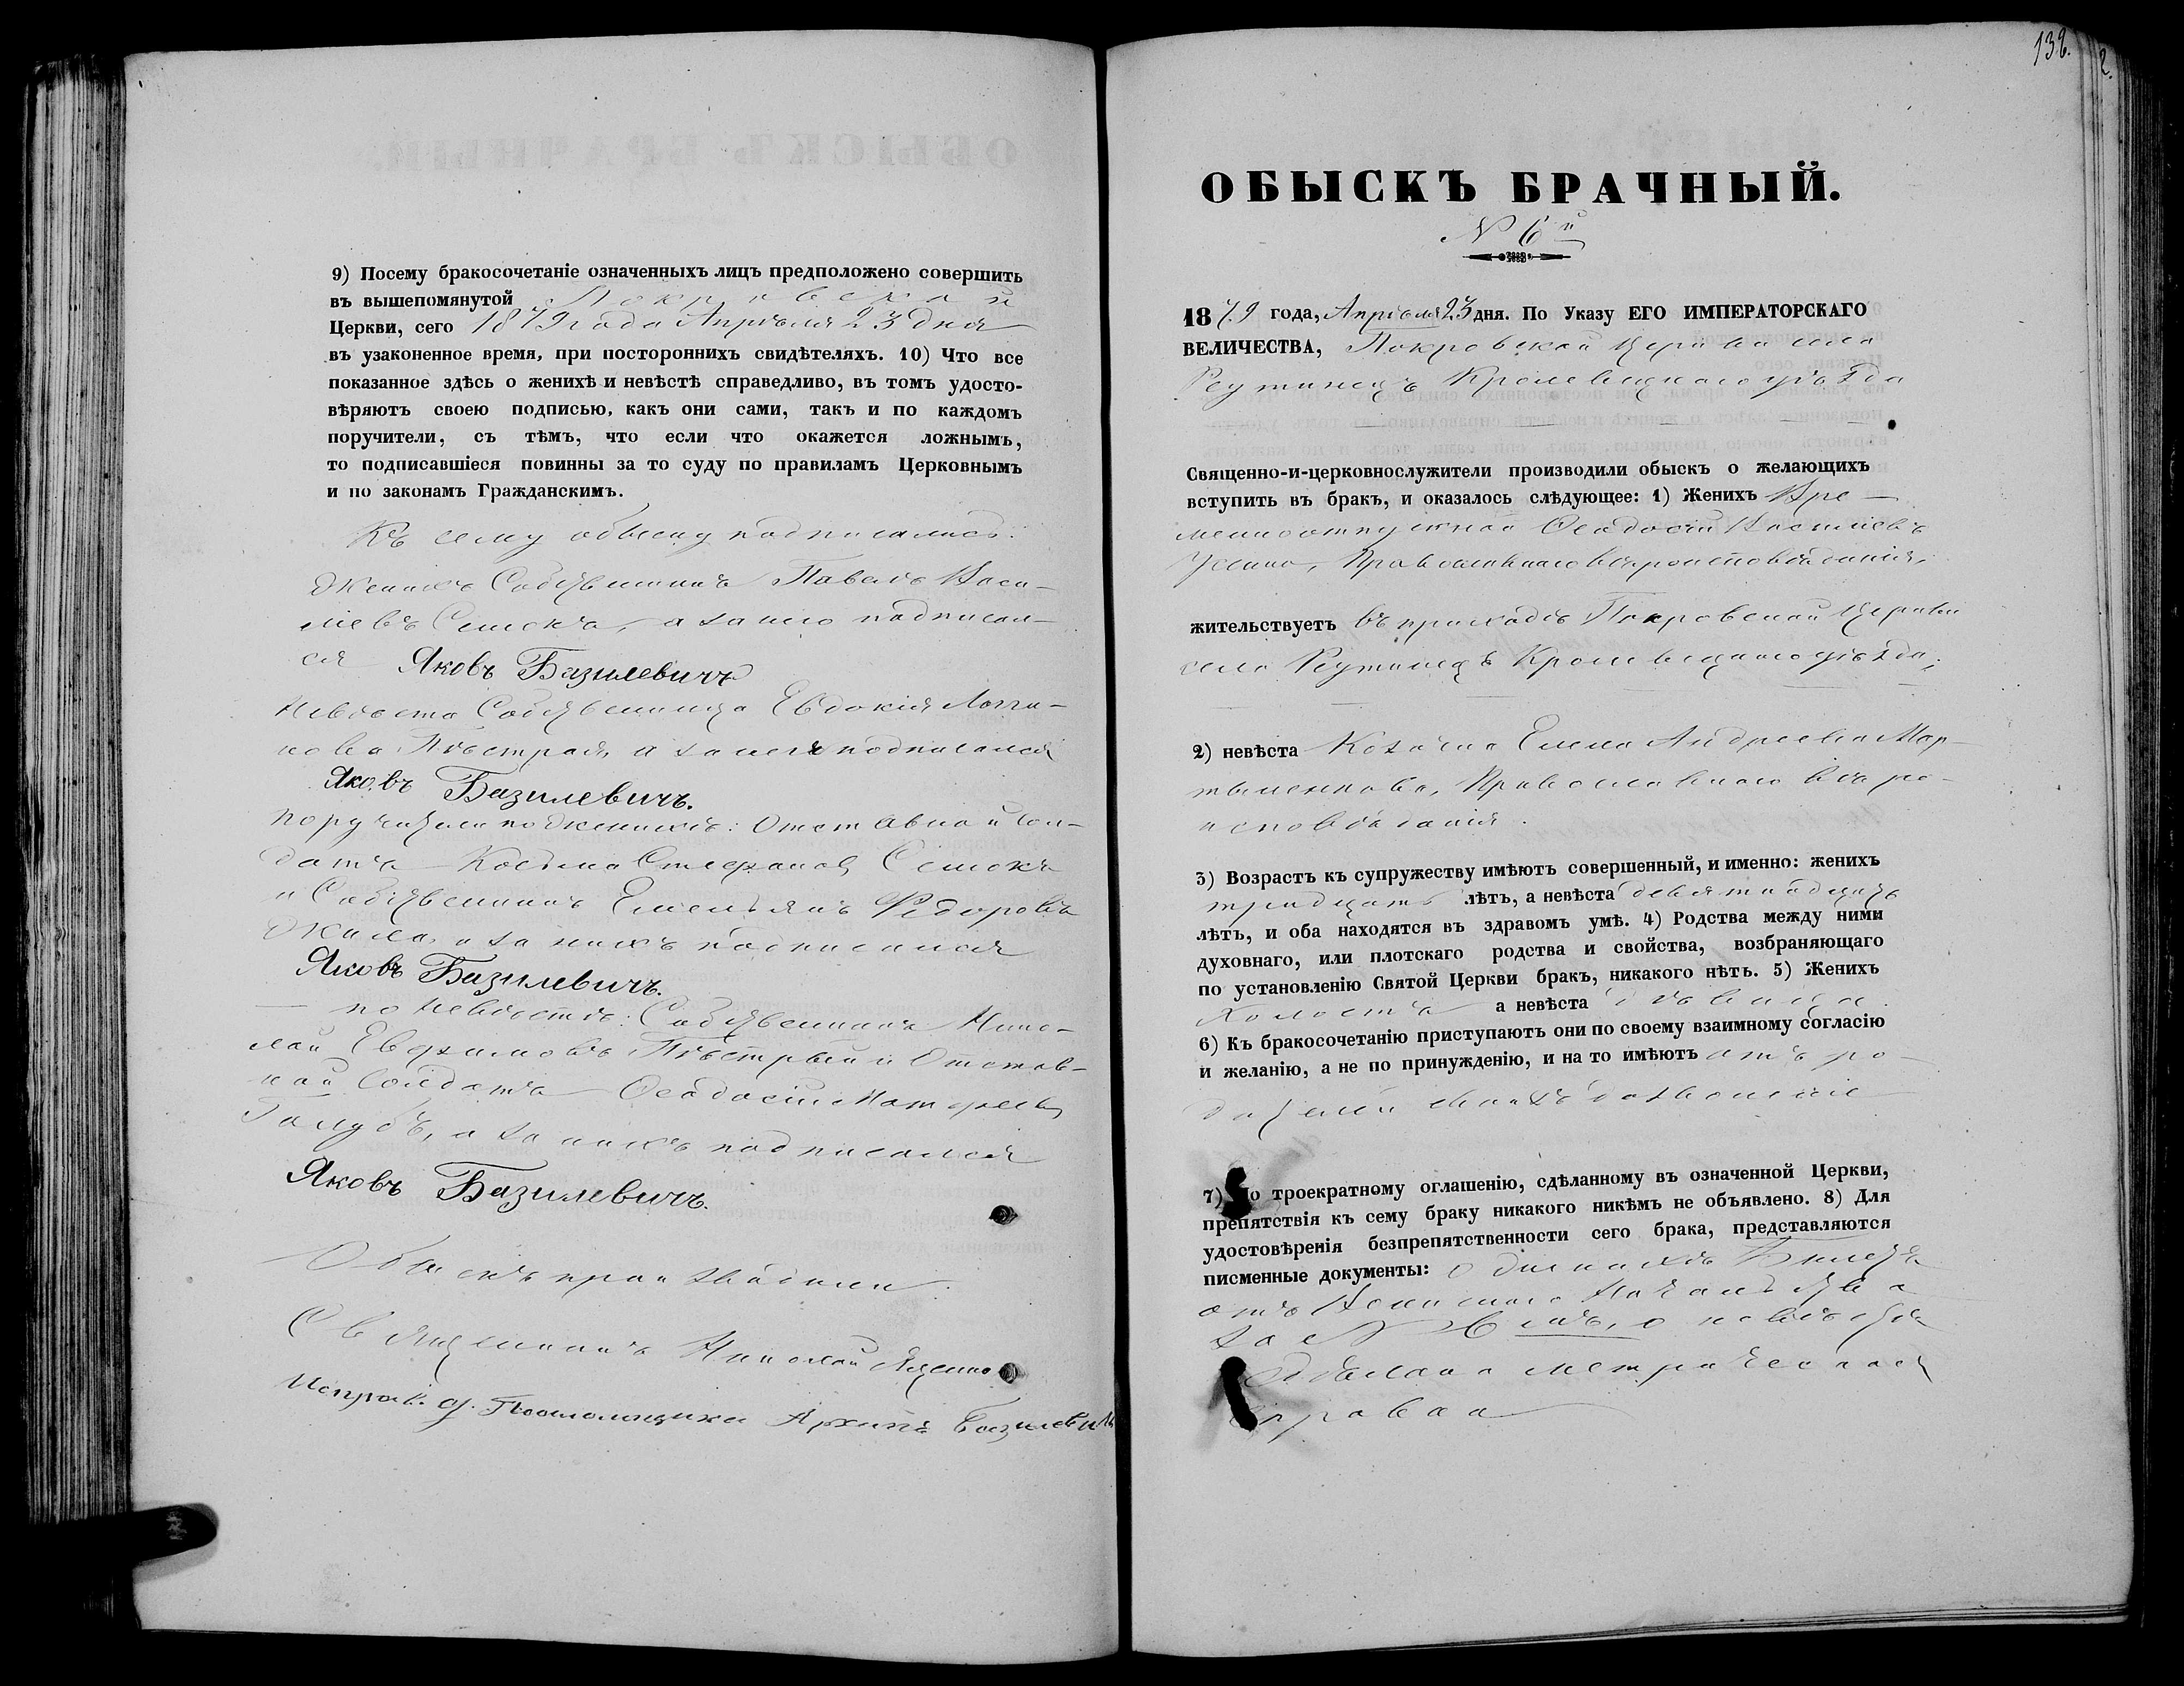 9) Посему бракосочетаніе означенныхъ лицъ предположено совершить
въ вышепомянутой Покровской
Церкви, сего 1879 года Апрѣля 23 дня
въ узаконенное время, при постороннихъ свидѣтеляхъ. 10) Что все
показанное здѣсь о женихѣ и невѣстѣ справедливо, въ томъ удосто-
вѣряютъ своею подписью, какъ они сами, такъ и по каждомъ
поручители, съ тѣмъ, что если что окажется ложнымъ,
то подписавшіеся повинны за то суду по правиламъ Церковнымъ
и по законамъ Гражданскимъ.
Къ сему обыску подписались:
Женихъ Собственникъ Павелъ Васи-
ліевъ Сешокъ, а за него подписал-
ся Яковъ Базилевичъ
Невѣста Собственница Евдокія Логги-
нова Пѣстрая, а за нея подписался
Яковъ Базилевичъ.
поручители по женихѣ: Отставной Сол-
датъ Косьма Стефановъ Сешокъ
и Собственникъ Емельянъ Федоровъ
а за нихъ подписался
Яковъ Базилевичъ.
— по невѣстѣ: Собственникъ Нико-
лай Евфимовъ Пѣстрый и Отстав-
ной Солдатъ Ѳеодосій Матфеевъ
Голубъ, а за нихъ подписался
Яковъ Базилевичъ.
Обыскъ производили:
Священникъ Николай
Исправ. д. Псаломщика Архипъ Базилевичъ
138.
2.
ОБЫСКЪ БРАЧНЫЙ.
N 6й
1879 года, Апрѣля 23 дня. По Указу ЕГО ИМПЕРАТОРСКАГО
ВЕЛИЧЕСТВА, Покровской Церкви села
Реутинецъ Кролевецкаго уѣзда
Священно-и-церковнослужители производили обыскъ о желающихъ
вступить въ бракъ, и оказалось слѣдующее: 1) Женихъ Вре-
менноотпускной Ѳеодосій Василіевъ
Православнаго вѣроисповѣданія,
жительствуетъ въ приходѣ Покровской Церкви
села Реутинецъ Кролевецкаго уѣзда;
2) невѣста Козачка Елена Андреевна Мар-
тыненкова, Православнаго вѣро-
исповѣданія.
3) Возрастъ къ супружеству имѣютъ совершенный, и именно: женихъ
тридцать лѣтъ, а невѣста девятнадцать
лѣтъ, и оба находятся въ здравомъ умѣ. 4) Родства между ними
духовнаго, или плотскаго родства и свойства, возбраняющаго
по установленію Святой Церкви бракъ, никакого нѣтъ. 5) Женихъ
холостъ а невѣста дѣвица.
6) Къ бракосочетанію приступаютъ они по своему взаимному согласію
и желанію, а не по принужденію, и на то имѣютъ отъ ро-
дителей своихъ дозволеніе
7) По троекратному оглашенію, сдѣланному въ означенной Церкви,
препятствія къ сему браку никакого никѣмъ не объявлено. 8) Для
удостовѣренія безпрепятственности сего брака, представляются
писменные документы: о женихѣ Билетъ
отъ Воинскаго Начальства
за N о невѣстѣ
сдѣлана метрическая
справка